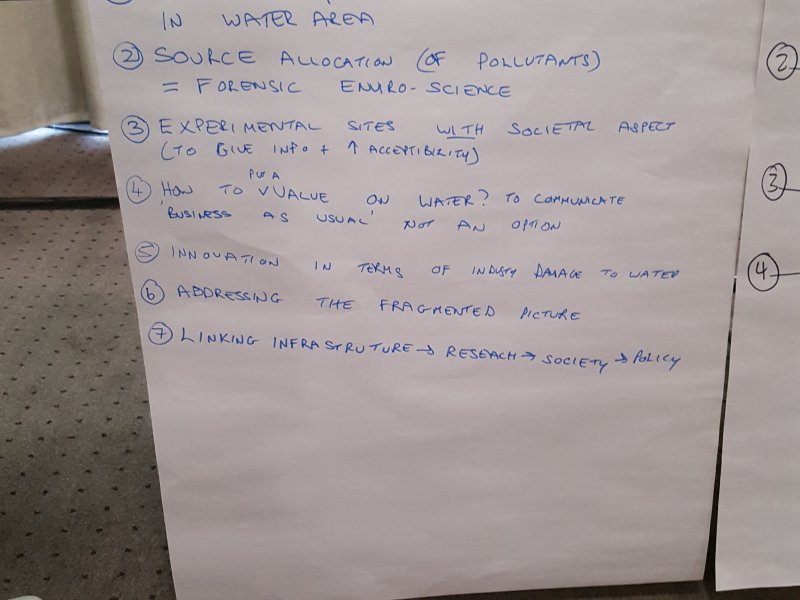 IN WATER AREA
② SOURCE ALLOCATION (OF POLLUTANTS)
= FORENSIC ENVIRO-SCIENCE
③ EXPERIMENTAL SITES WITH SOCIETAL ASPECT
(TO GIVE INFO + ↑ ACCEPTIBILITY)
PUT A
④ HOW TO V VALUE ON WATER? TO COMMUNICATE
'BUSINESS AS USUAL' NOT AN OPTION
⑤ INNOVATION IN TERMS OF INDUSTY DAMAGE TO WATER
⑥ ADDRESSING THE FRAGMENTED PICTURE
⑦ LINKING INFRASTRUTURE → RESEACH → SOCIETY → POLICY
②
③
④